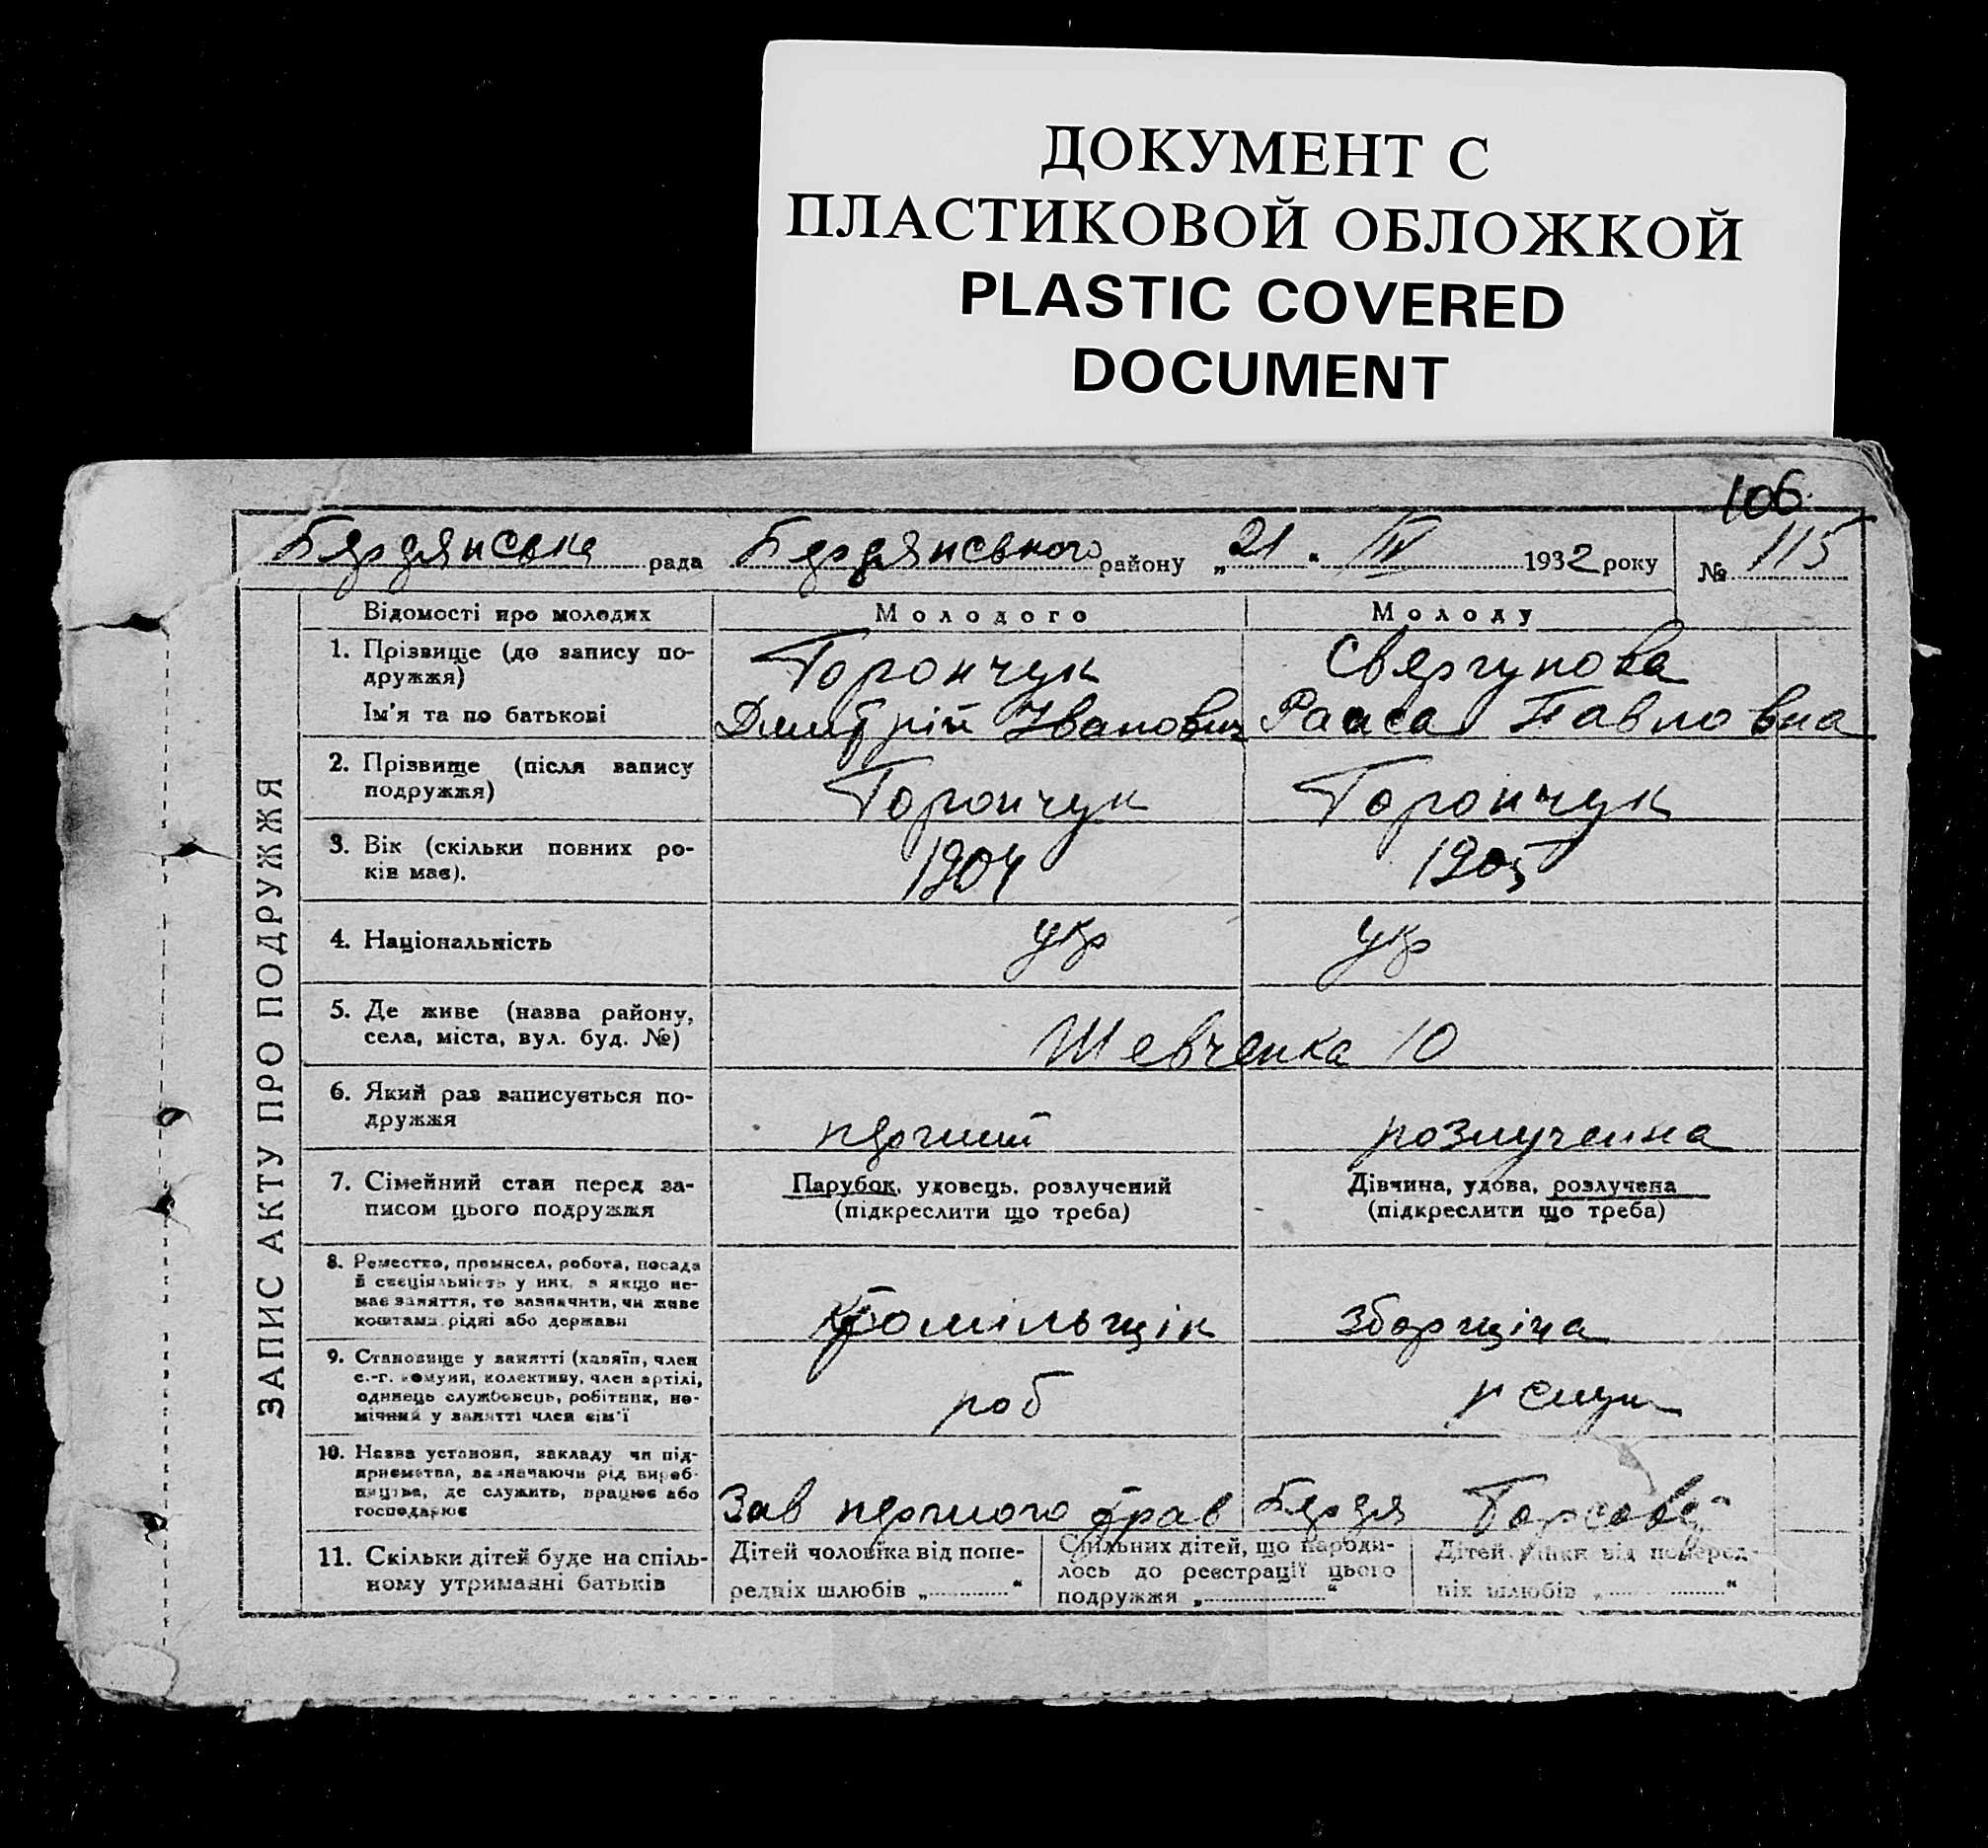 ДОКУМЕНТ С
ПЛАСТИКОВОЙ ОБЛОЖКОЙ
PLASTIC COVERED
DOCUMENT
106
Бердянська рада Бердянського району „21“ IV 1932 року № 115
ЗАПИС АКТУ ПРО ПОДРУЖЖЯ
Відомості про молодих Молодого Молоду
1. Прізвище (до запису подружжя) Горончук Свергунова
Ім'я та по батькові Дмитрій Іванович Раиса Павловна
2. Прізвище (після запису подружжя) Горончук Горончук
3. Вік (скільки повних років має). 1904 1905
4. Національність укр укр
5. Де живе (назва району, села, міста, вул. буд. №) Шевченка 10
6. Який раз записується подружжя перший розлученна
7. Сімейний стан перед записом цього подружжя Парубок, удовець, розлучений (підкреслити що треба) Дівчина, удова, розлучена (підкреслити що треба)
8. Ремество, промисел, робота, посада й спеціяльність у них, а якщо немає заняття, то зазначити, чи живе коштами рідні або держави зборщіца
9. Становище у занятті (хазяїн, член с.-г. комуни, колективу, член артілі, одинець службовець, робітник, помічний у занятті член сім'ї роб служ
10. Назва установи, закладу чи підприємства, зазначаючи рід виробництва, де служить, працює або господарює Зав першого трав Бердя
11. Скільки дітей буде на спільному утриманні батьків Дітей чоловіка від попередніх шлюбів „ “ Спільних дітей, що народилось до реєстрації цього подружжя „ “ Дітей жінки від попередніх шлюбів „ “